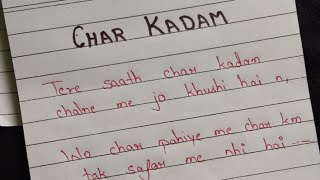 CHAR KADAM
Tere saath char kadam
chalne me jo khushi hai n,
Wo char pahiye me char km
tak safar me nhi hai --